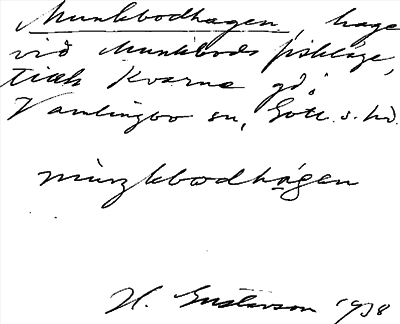 Munkbodhagen, hage
vid Munkbods fiskläge,
Kvarne gd,
Vamlingbo sn, Gotl. s. hd.
H. Gustavson 1938